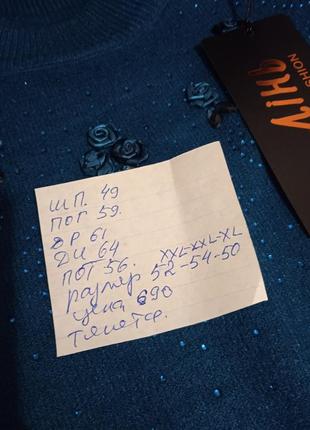 Ш.П. 49
ПОГ 59.
ДР 61
ДИ 64
ПОТ 56. XXL-XXL-XL
размер 52-54-50
цена 690
тянется.
SHION